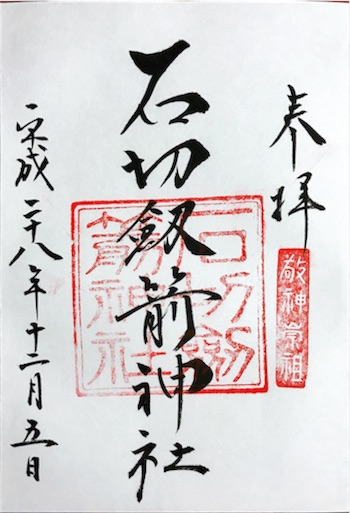 奉拝
敬神崇祖
石切劔箭神社
石切劔箭神社
平成二十八年十二月五日